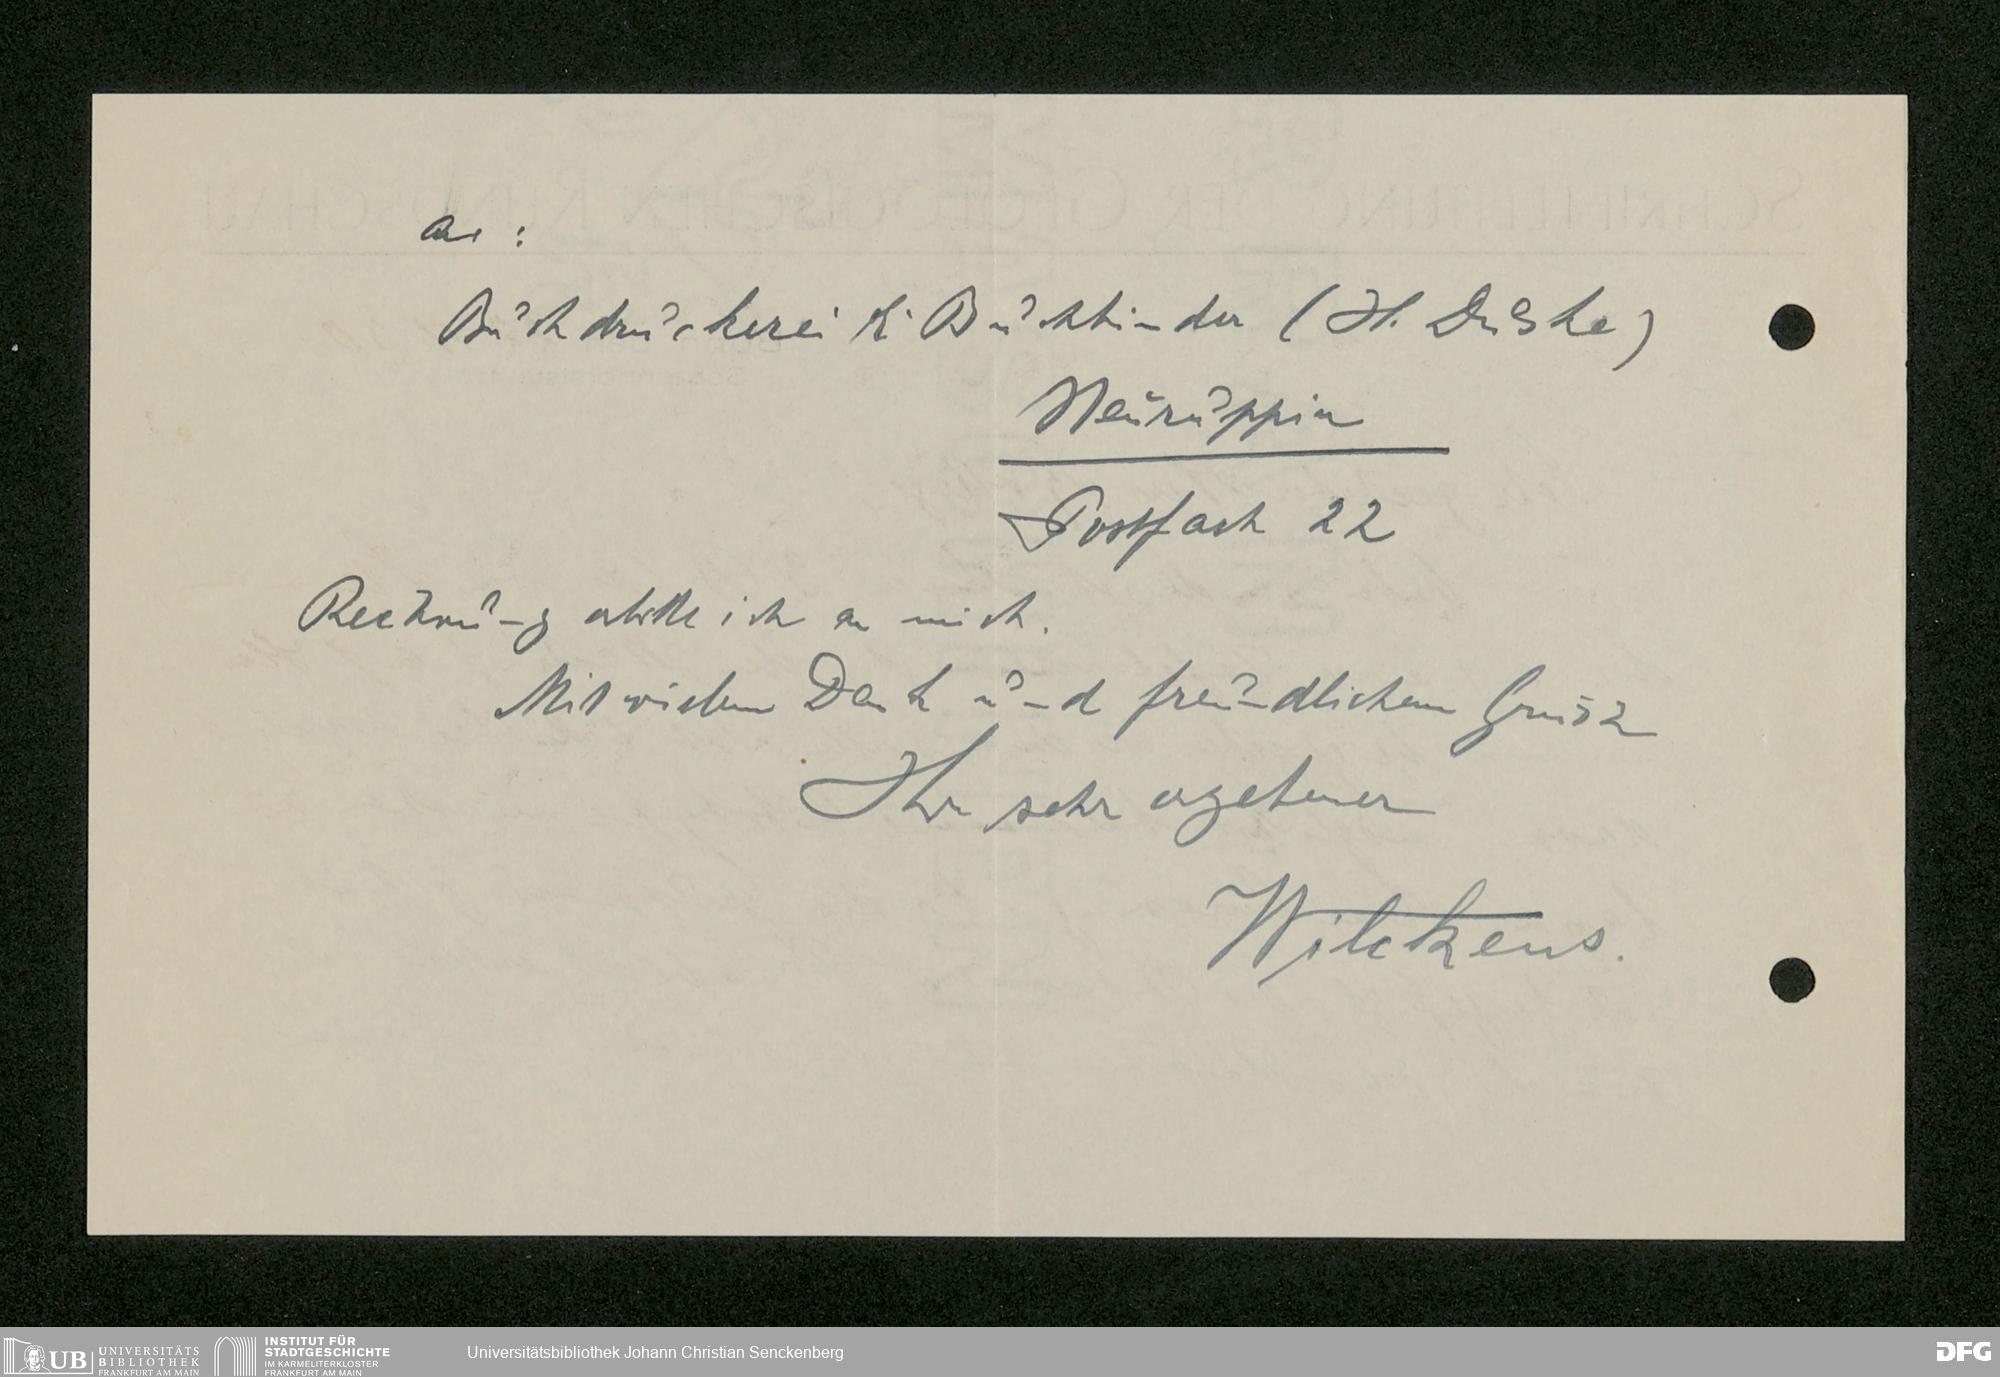 an:
Buchdruckerei E. Buchbinder (H. Duske)
Neuruppin
Postfach 22
Rechnung erbitte ich an mich.
Mit vielem Dank und freundlichem Grusz
Ihr sehr ergebener
Wilckens.
UB UNIVERSITÄTS BIBLIOTHEK FRANKFURT AM MAIN
INSTITUT FÜR STADTGESCHICHTE IM KARMELITERKLOSTER FRANKFURT AM MAIN
Universitätsbibliothek Johann Christian Senckenberg
DFG